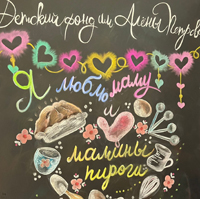 Детский фонд им. Алёны Петров
Я люблю маму
и
мамины
пироги